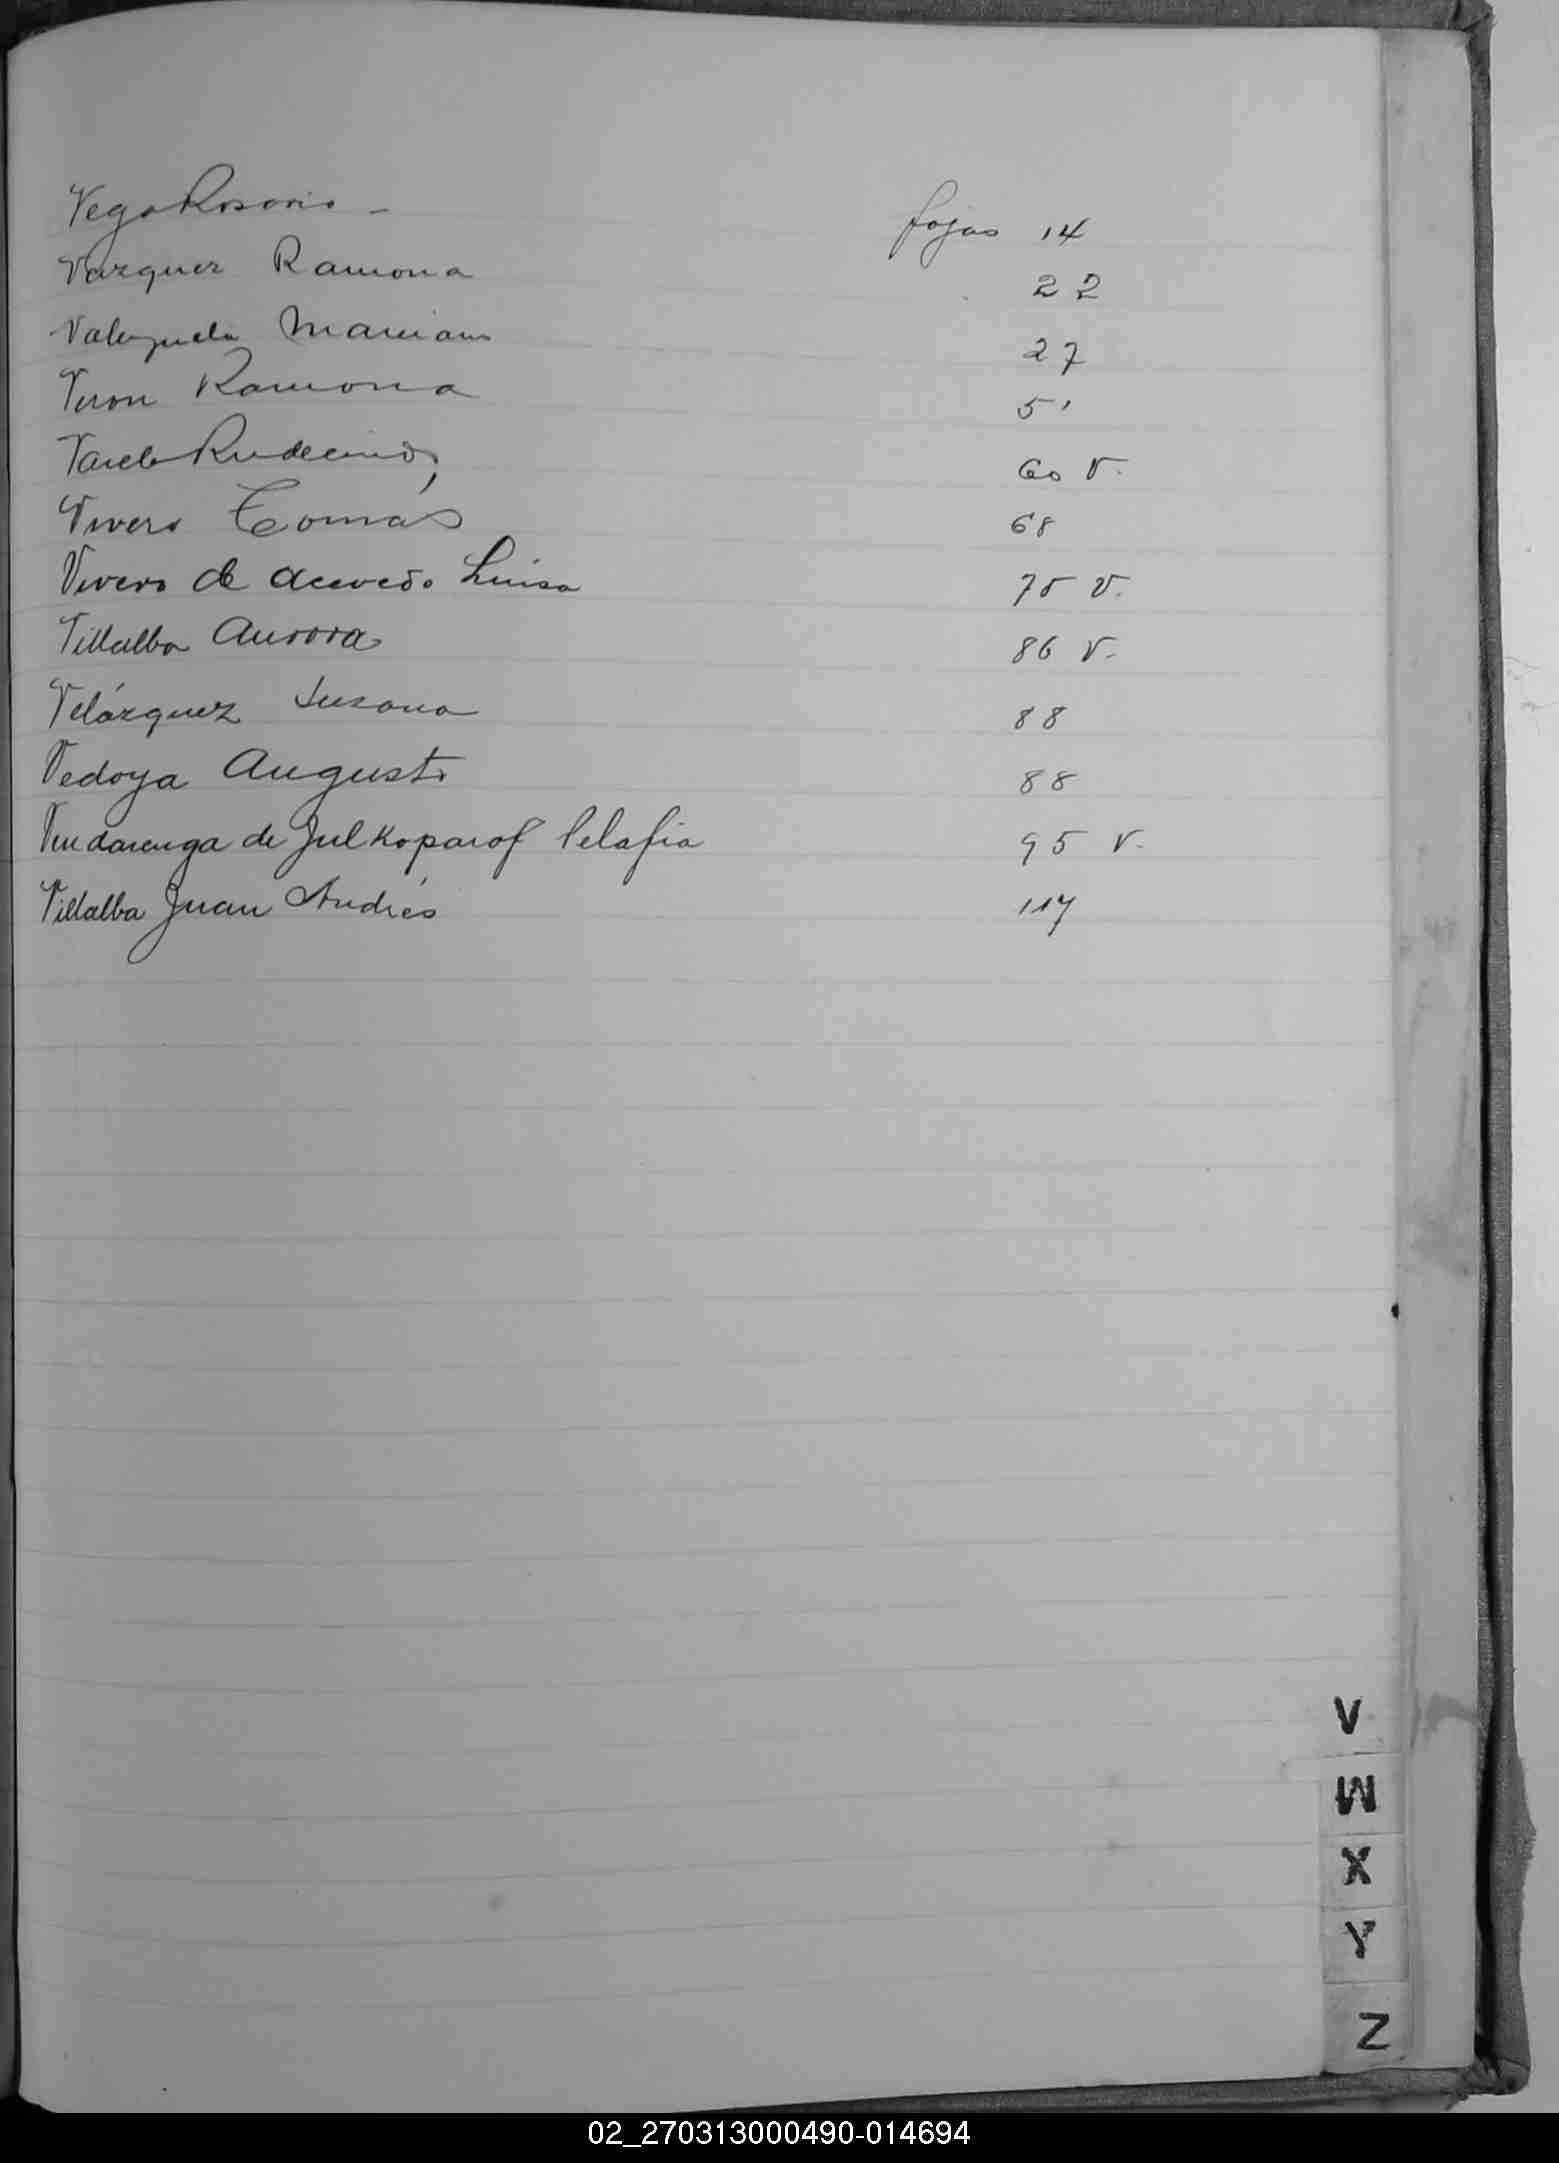 Vega Rosario - fojas 14
Vazquez Ramona 22
Valenzuela Marciano 27
Veron Ramona 51
Varela Rudecindo, 60 V.
Vivero Tomás 68
Vivero de Acevedo Luisa 75 V.
Villalba Aurora 86 V.
Velázquez Susana 88
Vedoya Augusto 88
de 95 V.
Villalba Juan Andrés 117
V
W
X
Y
Z
02_270313000490-014694